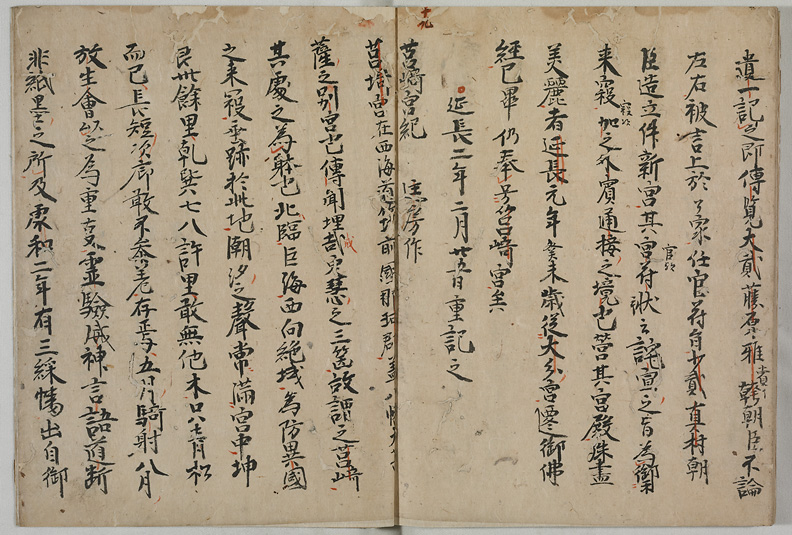 遺一記之即傳覧大貳藤原雅幹朝臣不論
左右被言上於公家任官符旨少貳真材朝
臣造立件新宮其宮符状云託宣之旨為禦
来寇加之外賓通接之境也營其宮殿殊盡
美麗者延長元年癸未歳従大分宮遷御佛
經已畢仍奉号筥崎宮矣
延長二年二月廿五日重記之
筥崎宮紀 匡房作
筥埼宮在西海道筑前國那珂郡蓋八幡大菩
薩之別宮也傳聞埋戒定慧之三篋故謂之筥崎
其處之為躰也北臨巨海西向絶域為防異國
之来寇垂跡於此地潮汐之聲常滿宮中坤
艮卅餘里乾巽七八許里敢無他木只青松
而已長短次序敢不参差存焉五月騎射八月
放生會以之為重更霊驗威神言語道断
非紙墨之所及承和二年有三綵幡出自御